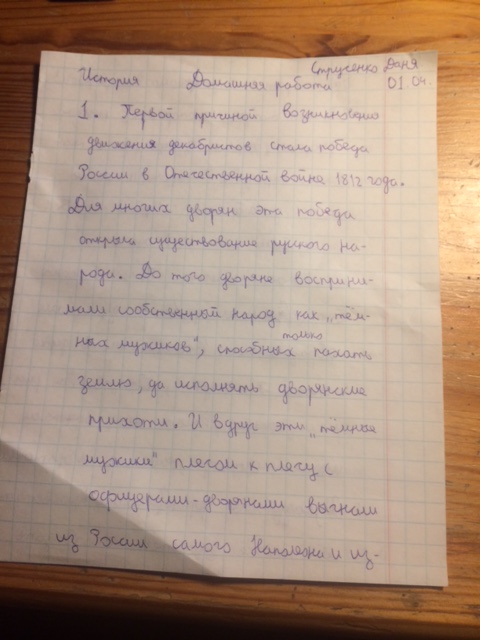 Струсенко Даня
История Домашняя работа 01.04.
1. Первой причиной возникновения
движения декабристов стала победа
России в Отечественной войне 1812 года.
Для многих дворян эта победа
открыла существование русского на-
рода. До того дворяне восприни-
мали собственный народ как „тём-
ных мужиков", способных только пахать
землю, да исполнять дворянские
прихоти. И вдруг эти „тёмные
мужики" плечом к плечу с
офицерами-дворянами выгнали
из России самого Наполеона и из-